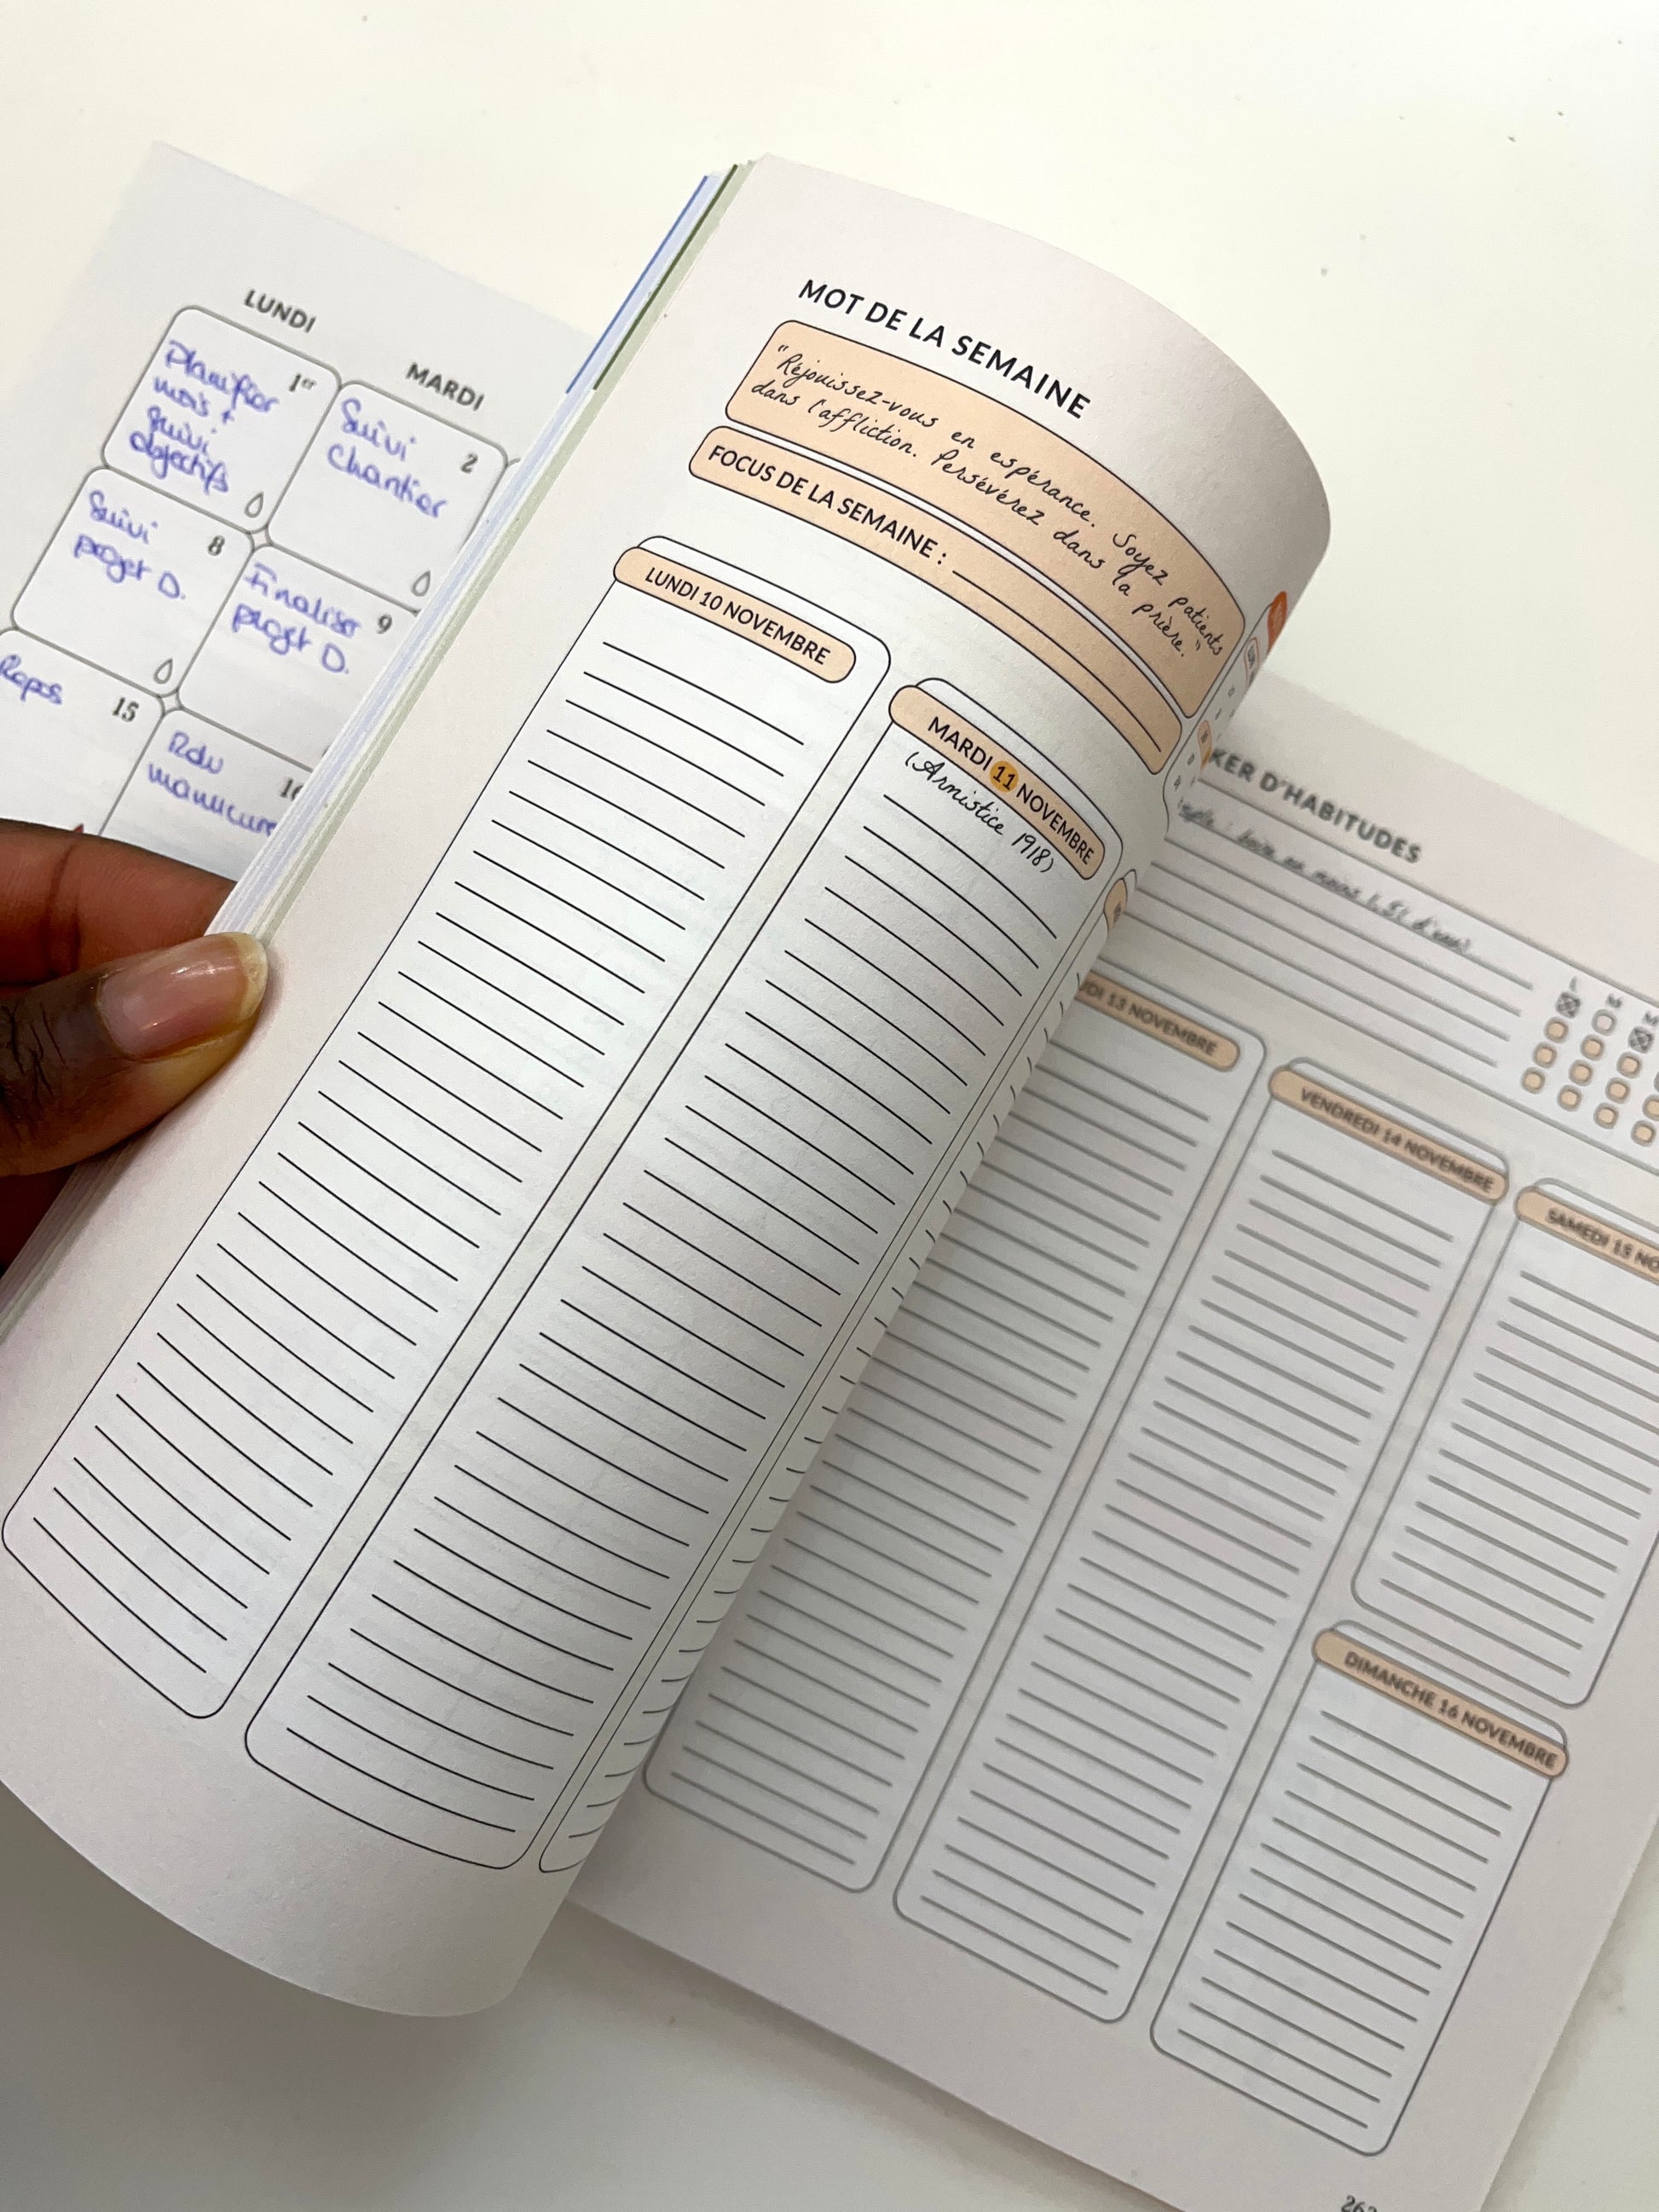 LUNDI
MARDI
Planifier
mois +
suivi
objectifs
1er
Suivi
chantier
2
Suivi
projet D.
8
Finaliser
projet D.
9
Repos
15
Rdv
manucure
MOT DE LA SEMAINE
"Réjouissez-vous en espérance. Soyez patients
dans l'affliction. Persévérez dans la prière."
FOCUS DE LA SEMAINE :
LUNDI 10 NOVEMBRE
MARDI 11 NOVEMBRE
(Armistice 1918)
KER D'HABITUDES
: boire au moins 1,5L d'eau
L M M
DI 13 NOVEMBRE
VENDREDI 14 NOVEMBRE
SAMEDI 15 NO
DIMANCHE 16 NOVEMBRE